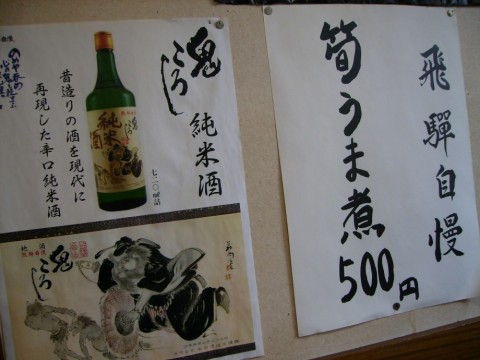 飛騨自慢
筍うま煮
500円
鬼ころし 純米酒
昔造りの酒を現代に
再現した辛口純米酒
七二〇㎖詰
純米酒
鬼ころし
鬼ころし
地酒